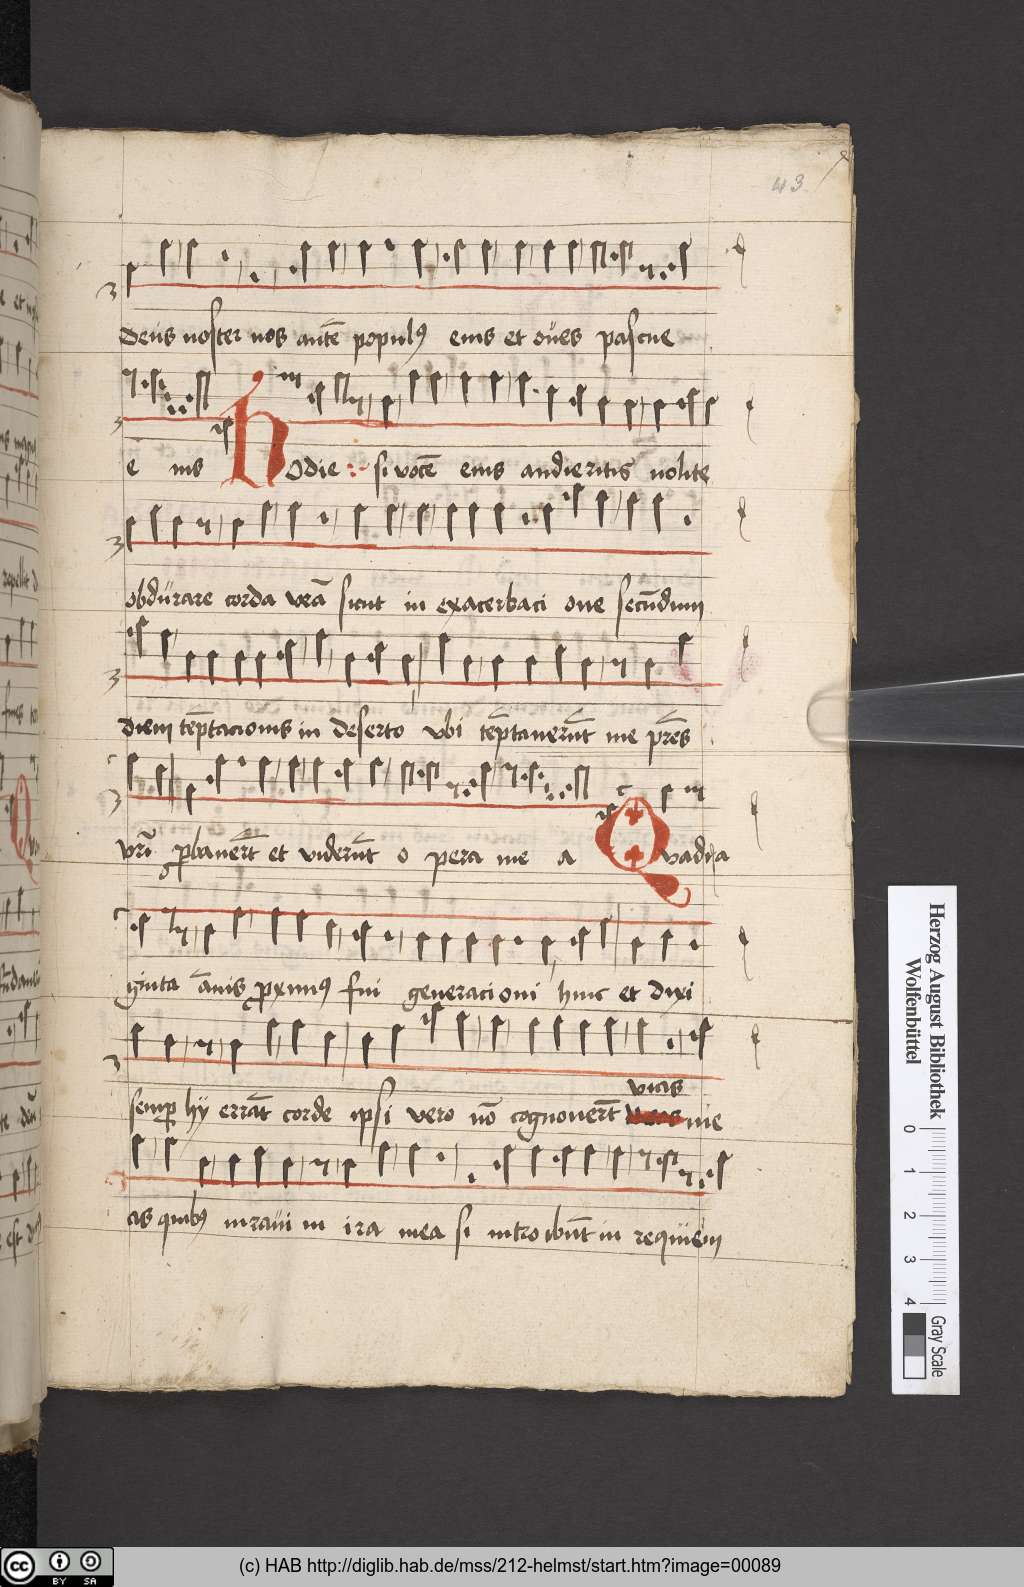 43
deus noster nos autē populꝰ eius et oues pascue
e ius Hodie si vocē eius audieritis nolite
obdurare corda vr̄a sicut in exacerbaci one secūdum
diem tēptacionis in deserto vbi tēptauerūt me pr̄es
vr̄i ꝓbauer̄t et viderūt o pera me a Quadra
ginta ānis ꝓximꝰ fui generaci oni huic et dixi
semꝑ hÿ errāt corde ipsi vero nō cognouer̄t me
vias
as quibꝰ iuraui in ira mea si intro ibūt in requiem
Herzog August Bibliothek
Wolfenbüttel
0 1 2 3 4
Gray Scale
cc BY SA
(c) HAB http://diglib.hab.de/mss/212-helmst/start.htm?image=00089